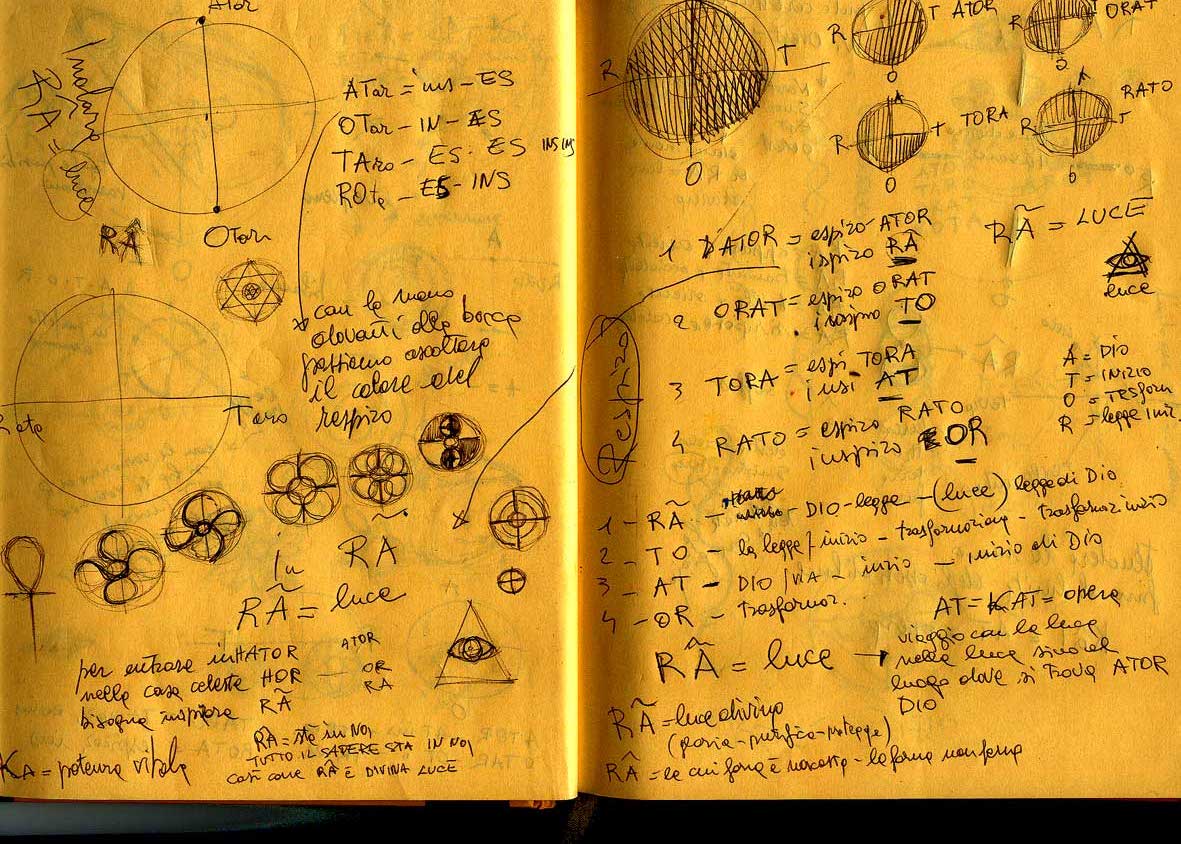 ATor
Inalare
RÂ
= luce
RÂ
OTar
ATar = ins - ES
OTar - IN - ES
TAro - ES - ES INS INS
ROta - ES - INS
con la mano
davanti alla bocca
possiamo ascoltare
il calore del
respiro
Rota
Taro
in RÃ
RÃ = luce
per entrare in HATOR ATOR
nella casa celeste HOR OR
bisogna inspirare RÃ RA
RA = sta in NOI
TUTTO IL SAPERE STÀ IN NOI
così come RÂ È DIVINA LUCE
KA = potenza vitale
R T
O
R T ATOR
O
ORAT
A
R T TORA
O
A
R T RATO
O
1 RATOR = espiro ATOR
ispiro RÂ
2 ORAT = espiro ORAT
inspiro TO
3 TORA = espi. TORA
insi AT
4 RATO = espiro RATO
inspiro OR
Respiro
RÃ = LUCE
luce
A = DIO
T = INIZIO
O = TRASFORM
R = legge iniz.
1 - RÃ - DIO - legge - (luce) legge di DIO
2 - TO - la legge / inizio - trasformazione - trasformaz inizio
3 - AT - DIO / VIA - inizio - inizio di DIO
4 - OR - trasformaz.
AT = KAT = opera
RÂ = luce → viaggio con la luce
nella luce sino al
luogo dove si trova ATOR
DIO
RÃ = luce divina
(guaria - purifica - protegge)
RÂ = la cui forma è nascosta - la forma non forma